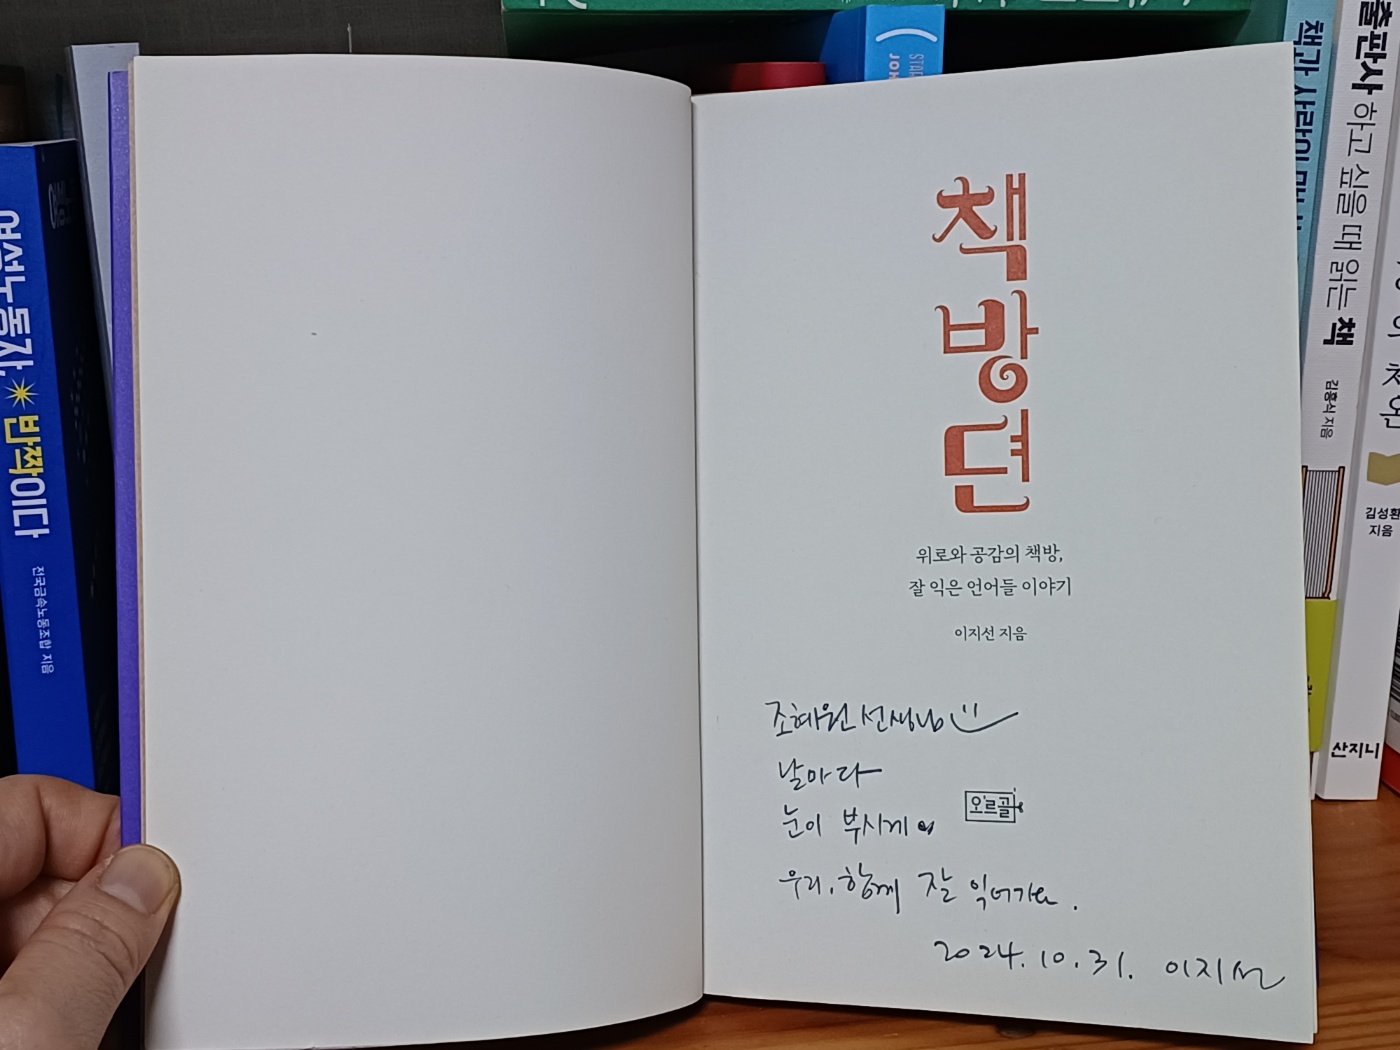 여성노동자, 반짝이다
전국금속노동조합 지음
책방뎐
위로와 공감의 책방,
잘 익은 언어들 이야기
이지선 지음
조혜원 선생님
날마다
눈이 부시게
오르골
우리, 함께 잘 익어가요.
2024.10.31. 이지선
책과 사람이
출판사 하고 싶을 때 읽는 책
김흥식 지음
김성환
지음
산지니